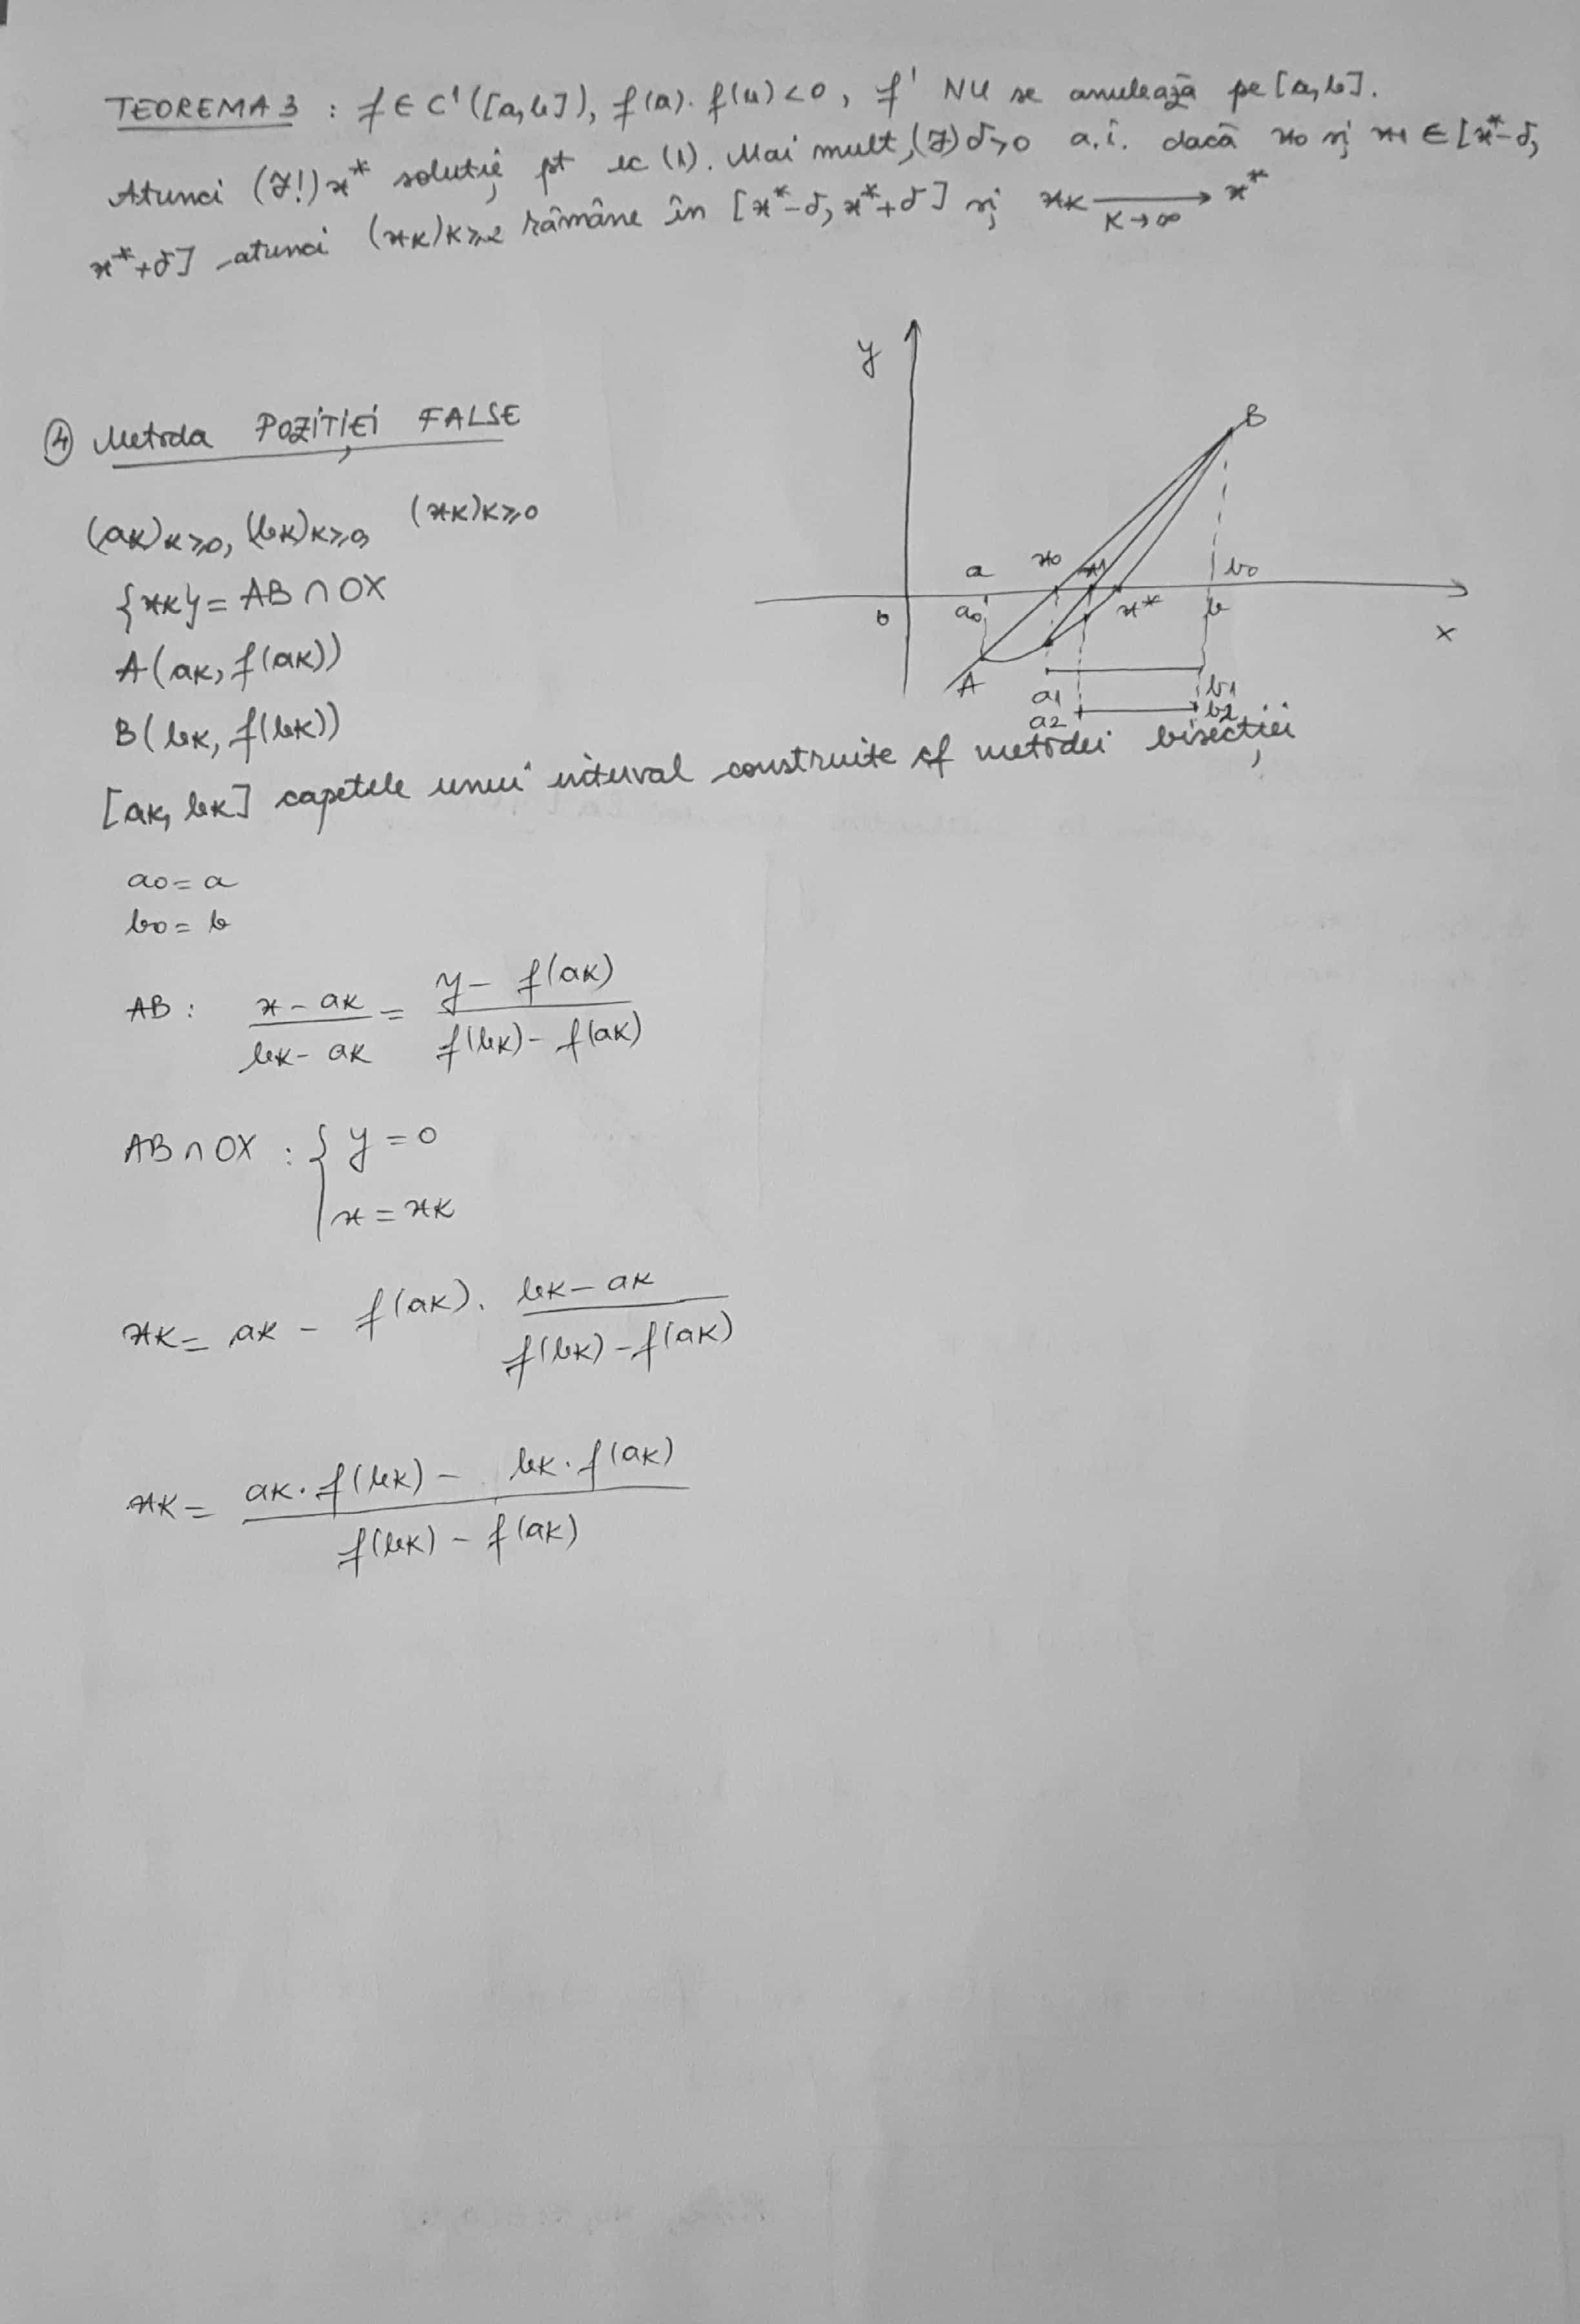 TEOREMA 3 : f ∈ C¹([a,b]), f(a). f(b) <0, f' NU se anulează pe [a,b].
Atunci (∃!) x* soluție pt ec (1). Mai mult, (∃) δ>0 a.î. dacă x0 și x1 ∈ [x*-δ,
x*+δ] atunci (xk)k≥2 rămâne în [x*-δ, x*+δ] și xk → x*
k→∞
④ Metoda POZIȚIEI FALSE
(ak)k≥0, (bk)k≥0, (xk)k≥0
{xk} = AB ∩ OX
A(ak, f(ak))
B(bk, f(bk))
[ak, bk] capetele unui interval construite cf metodei bisecției
y
B
a x0 x1 b0
0 a0 x* b x
A a1 b1
a2 b2
a0 = a
b0 = b
AB : x - ak / bk - ak = y - f(ak) / f(bk) - f(ak)
AB ∩ OX : { y = 0
x = xk
xk = ak - f(ak). bk - ak / f(bk) - f(ak)
xk = ak. f(bk) - bk. f(ak) / f(bk) - f(ak)